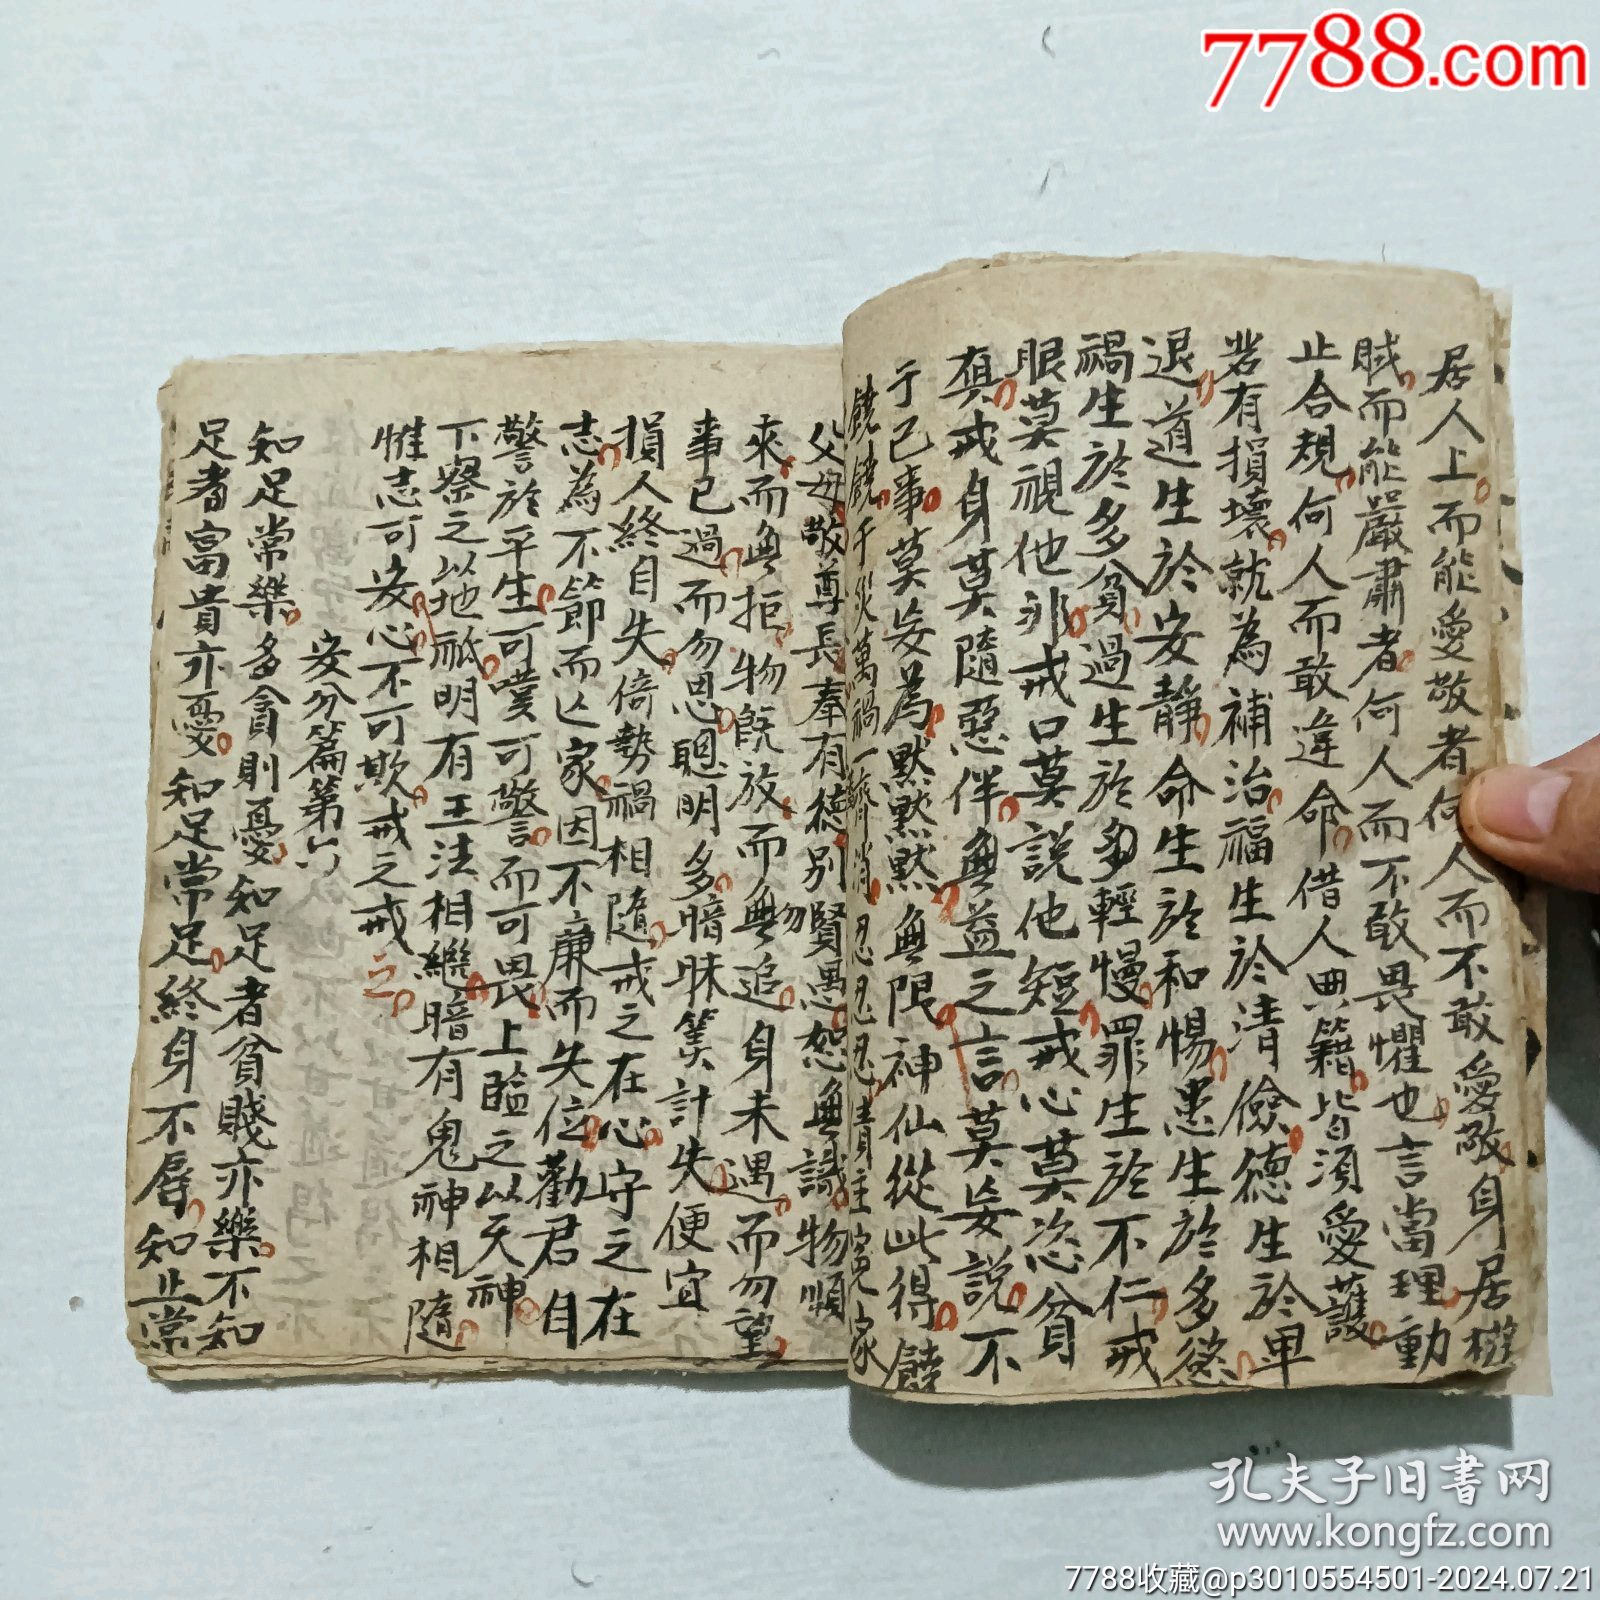 7788.com
居人上而能愛敬者何人而不敢愛敬身居槛
賊而能嚴肅者何人而不敢畏懼也言當理動
止合規何人而敢違命借人典籍皆須愛護
若有損壞就為補治福生於清儉德生於卑
退道生於安靜命生於和惕患生於多慾
禍生於多貪過生於多輕慢罪生於不仁戒
眼莫視他非戒口莫說他短戒心莫恣貪
嗔戒身莫隨惡伴無益之言莫妄說不
于己事莫妄為默默默無限神仙從此得饒
饒饒千災萬禍一齊消忍忍忍債主冤家
父母敬尊長奉有德別賢愚恕無識物順
來而無拒物既放而無追身未遇而勿望
事已過而勿思聰明多暗昧筭計失便宜
損人終自失倚勢禍相隨戒之在心守之在
志為不節而亡家因不廉而失位勸君自
警於平生可嘆可驚而可畏上臨之以天神
下察之以地祇明有王法相繼暗有鬼神相隨
惟志可安心不可欺戒之戒之
安分篇第六
知足常樂多貪則憂知足者貧賤亦樂不知
足者富貴亦憂知足常足終身不辱知止常
孔夫子旧书网
www.kongfz.com
7788收藏@p3010554501-2024.07.21